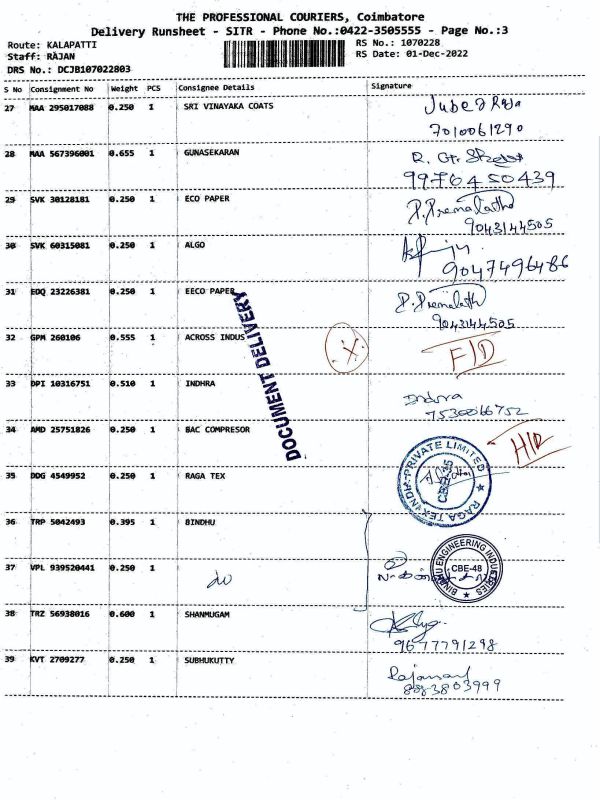 THE PROFESSIONAL COURIERS, Coimbatore
Delivery Runsheet - SITR - Phone No.:0422-3505555 - Page No.:3
Route: KALAPATTI
Staff: RAJAN
DRS No.: DCJB107022803
RS No.: 1070228
RS Date: 01-Dec-2022
S No Consignment No Weight PCS Consignee Details Signature
27 MAA 295017088 0.250 1 SRI VINAYAKA COATS
7010061290
28 MAA 567396001 0.655 1 GUNASEKARAN
9976450439
29 SVK 30128181 0.250 1 ECO PAPER P. Premalatha
9043144505
30 SVK 60315081 0.250 1 ALGO
9047496486
31 EDQ 23226381 0.250 1 EECO PAPER P. Premalath
9043144505
32 GPM 260106 0.555 1 ACROSS INDUS X F/D
DOCUMENT DELIVERY
33 DPI 10316751 0.510 1 INDHRA Indra
7530066752
34 AMD 25751826 0.250 1 BAC COMPRESOR H/D
35 DDG 4549952 0.250 1 RAGA TEX
RAGA TEX INDIA PRIVATE LIMITED
CBE-35
36 TRP 5042493 0.395 1 BINDHU
37 VPL 939520441 0.250 1 do
BINDHU ENGINEERING INDUSTRIES
CBE-48
38 TRZ 56938016 0.600 1 SHANMUGAM
9677791298
39 KVT 2709277 0.250 1 SUBHUKUTTY
8883803999